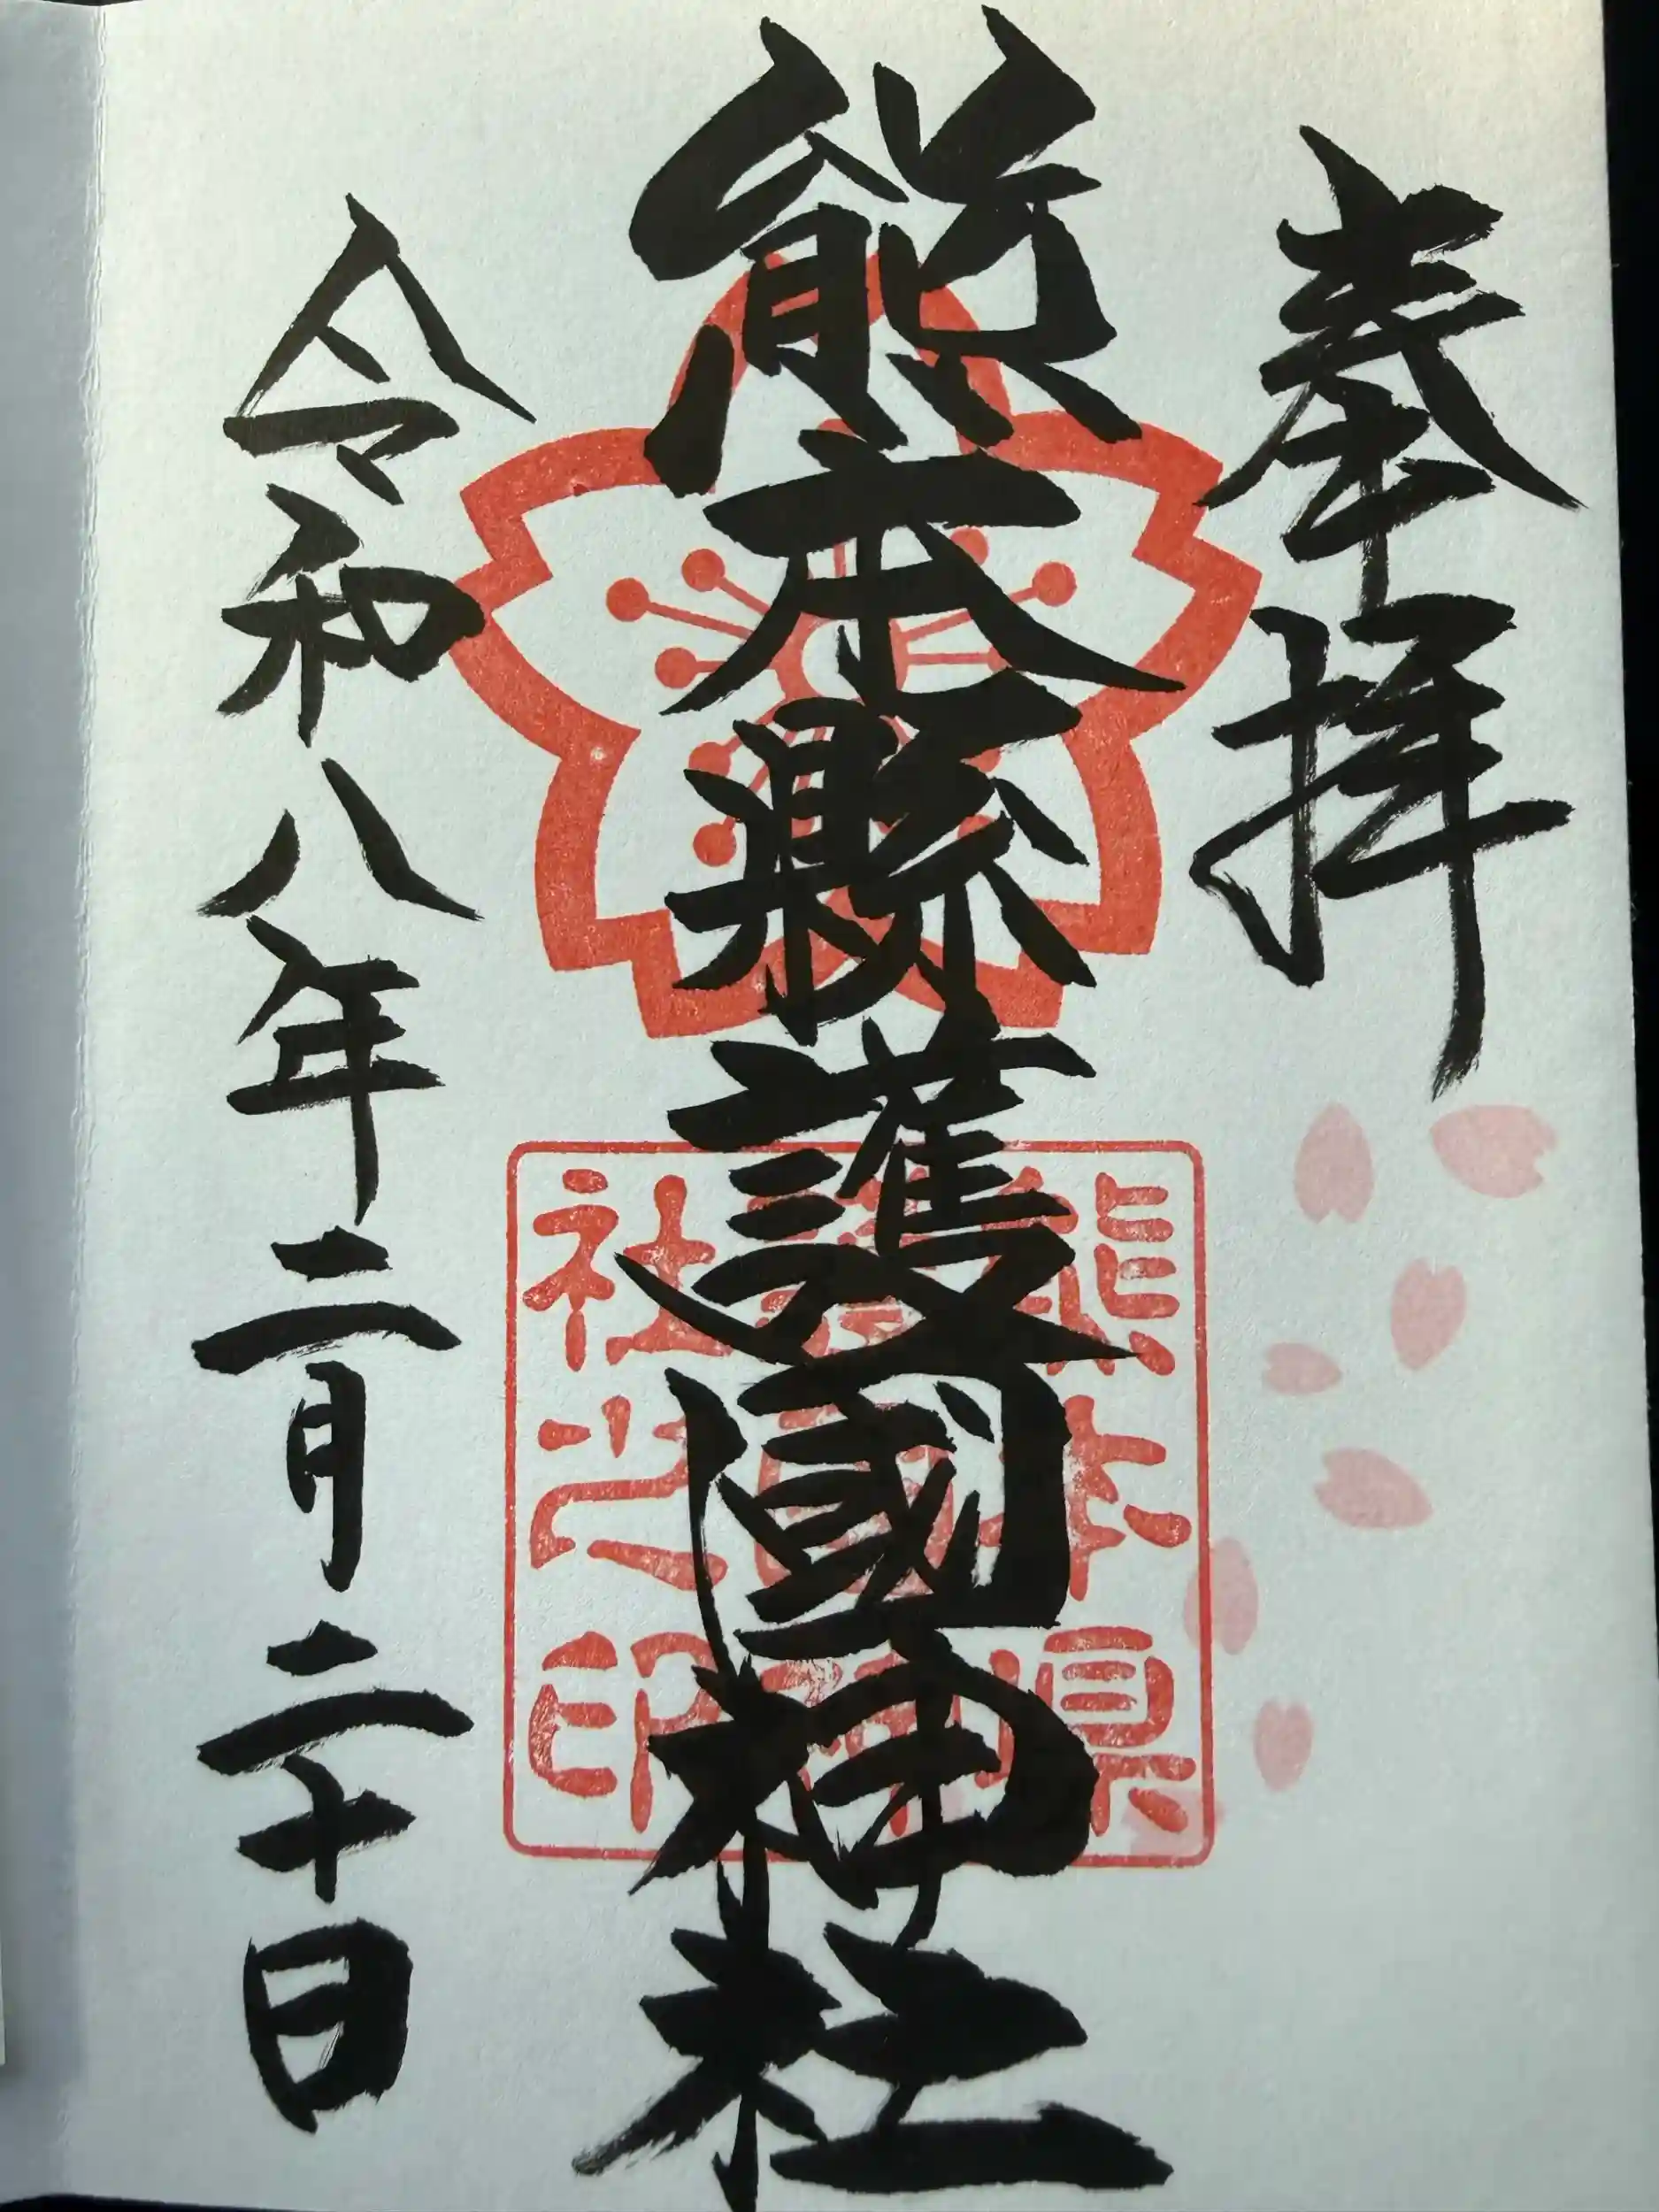 奉拝
熊本縣護國神社
熊本県
護國神
社之印
令和八年二月二十日